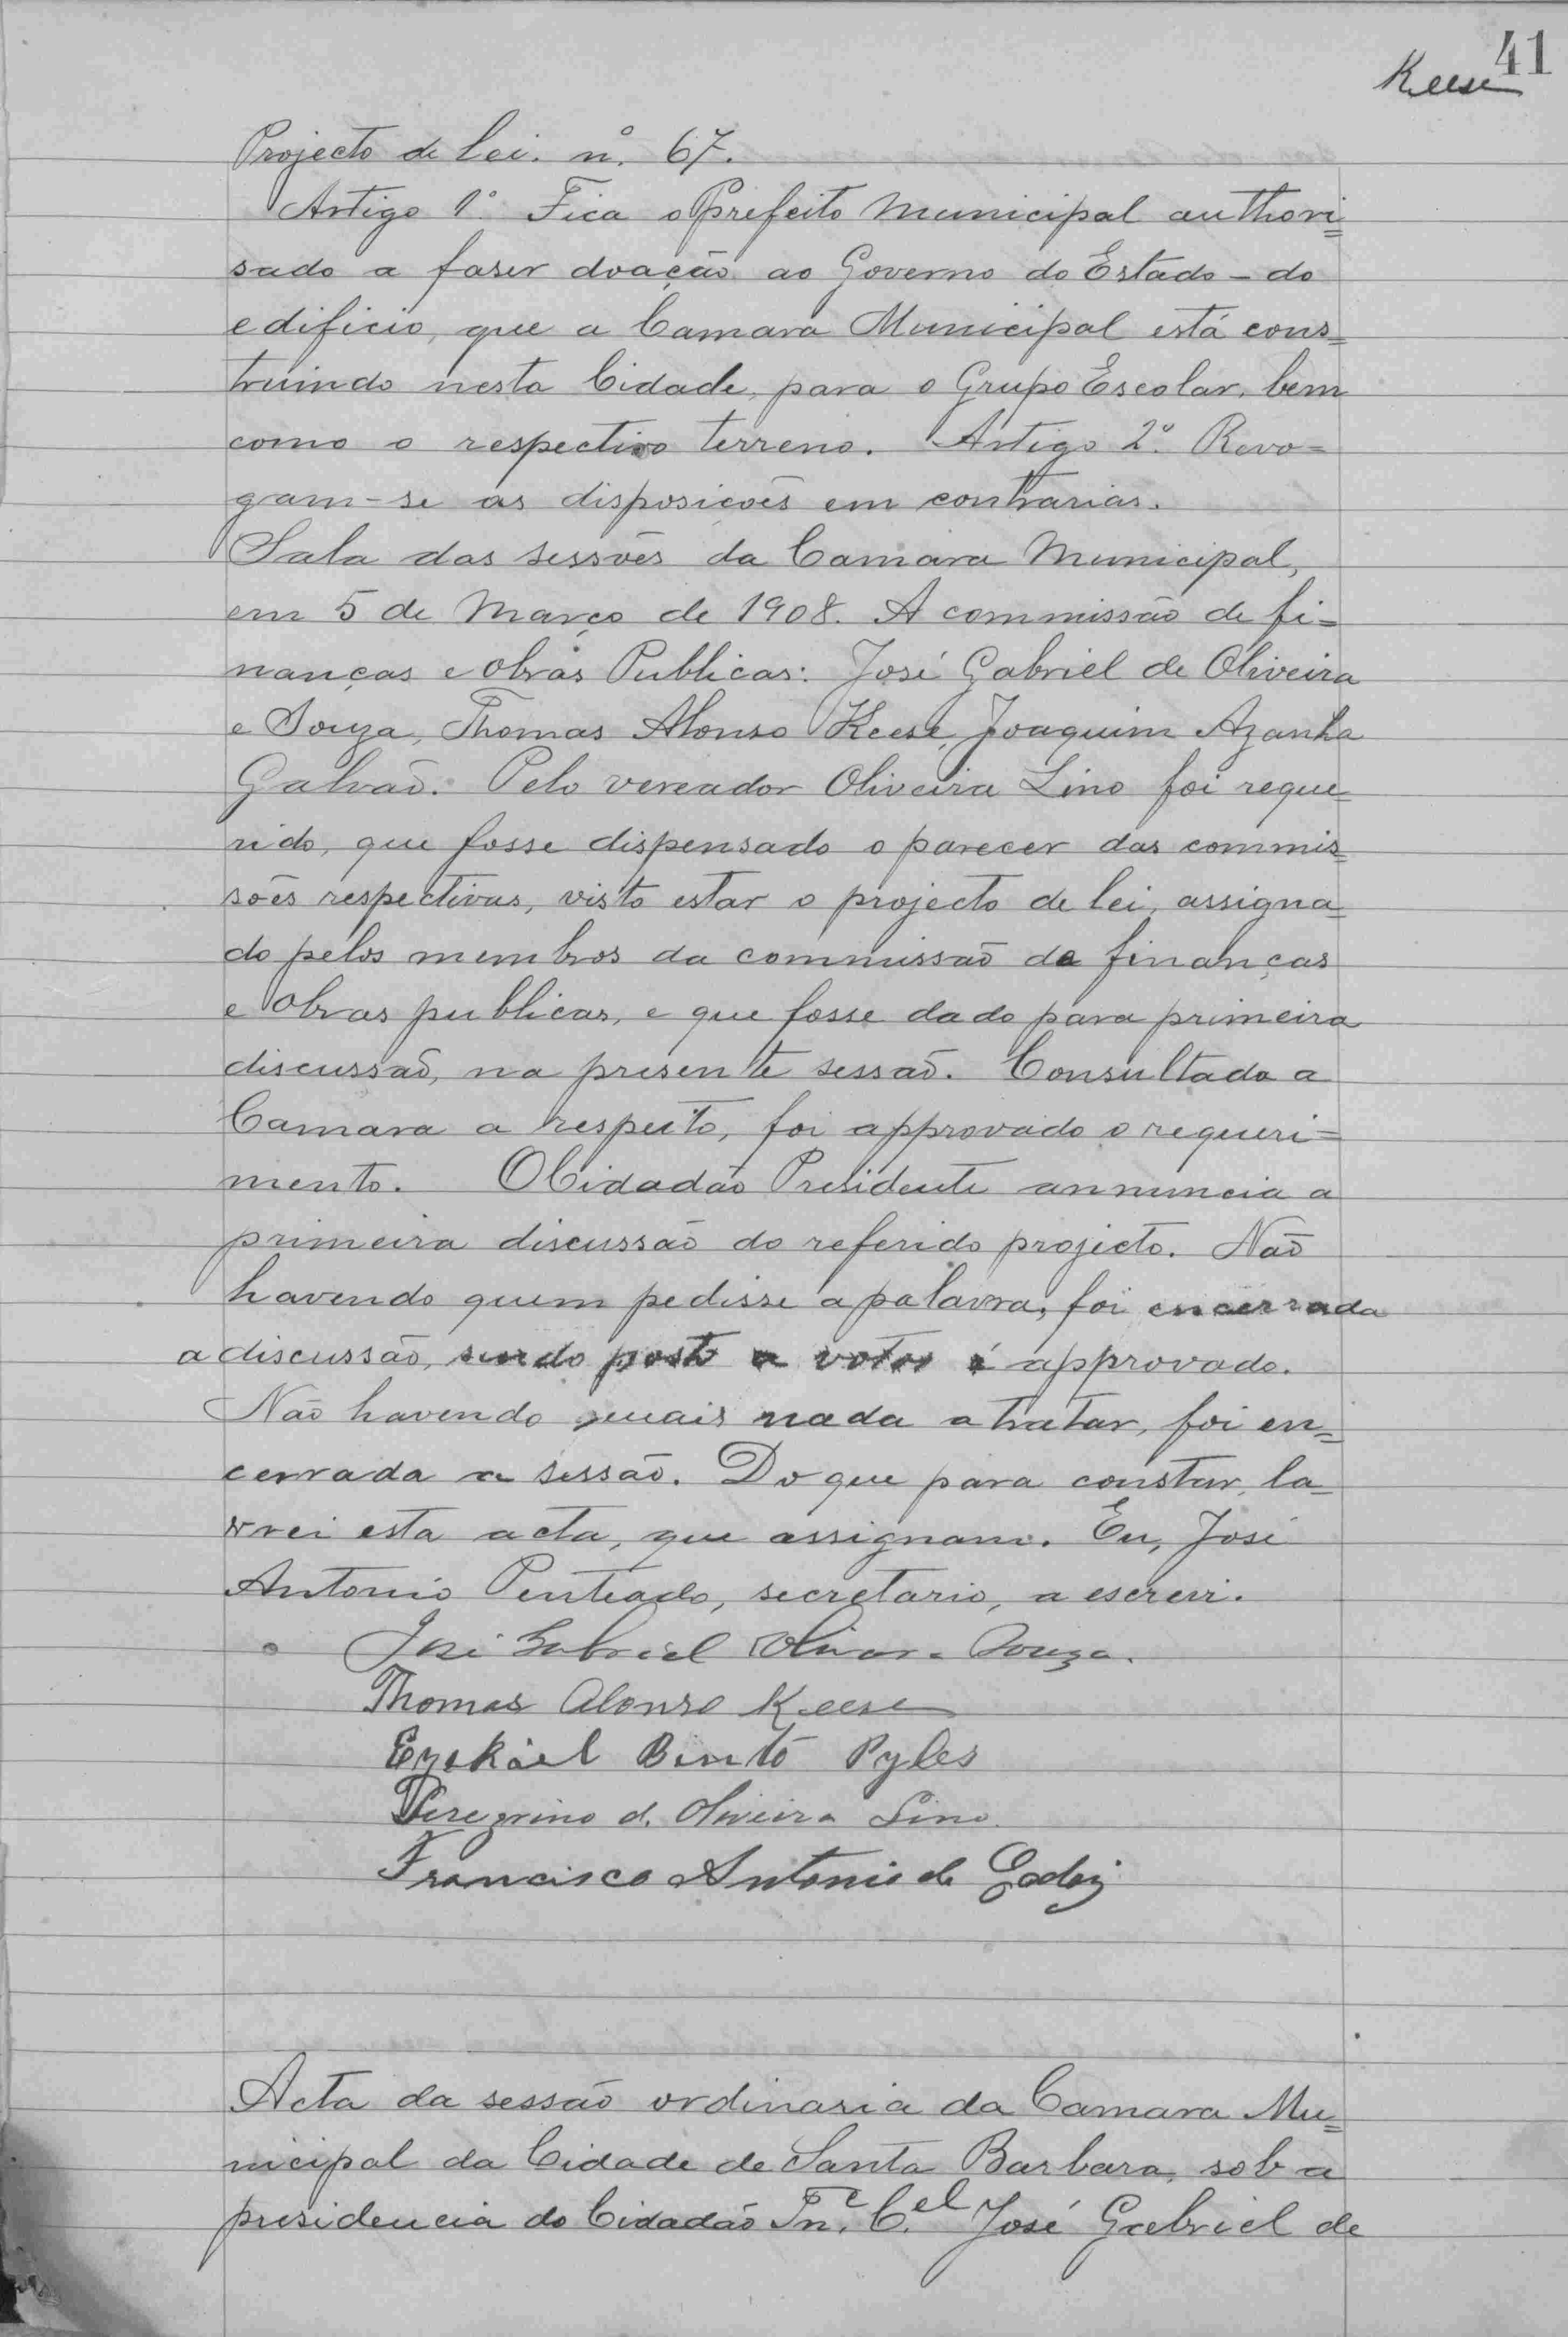 41
Keese
Projecto de lei. nº 67.
Artigo 1º. Fica o Prefeito Municipal authori=
sado a faser doação ao Governo do Estado - do
edificio, que a Camara Municipal está cons=
truindo nesta Cidade, para o Grupo Escolar, bem
como o respectivo terreno. Artigo 2º. Revo=
gam-se as disposicoês em contrarias.
Sala das sessoês da Camara Municipal,
em 5 de Março de 1908. A commissão de fi=
nanças e obras Publicas: José Gabriel de Oliveira
e Souza, Thomas Alonso Keese, Joaquim Azanha
Galvão. Pelo vereador Oliveira Lino foi reque=
rido, que fosse dispensado o parecer das commis=
sões respectivas, visto estar o projecto de lei, assigna=
do pelos membros da commissão de finanças
e obras publicas, e que fosse dado para primeira
discussão, na presente sessão. Consultada a
Camara a respeito, foi approvado o requeri=
mento. O Cidadão Presidente annuncia a
primeira discussão do referido projecto. Não
havendo quem pedisse a palavra, foi encerrada
a discussão, sendo posto a votos é approvado.
Não havendo mais nada a tratar, foi en=
cerrada a sessão. Do que para constar, la=
vrei esta acta, que assignam. Eu, José
Antonio Penteado, secretario, a escrevi.
José Gabriel Oliver. Souza.
Thomas Alonso Keese
Ezekiel Bento Pyles
Peregrino d. Oliveira Lino.
Francisco Antonio de Godoy
Acta da sessão ordinaria da Camara Mu=
nicipal da Cidade de Santa Barbara, sob a
presidencia do Cidadão Tn.e C.el José Gabriel de